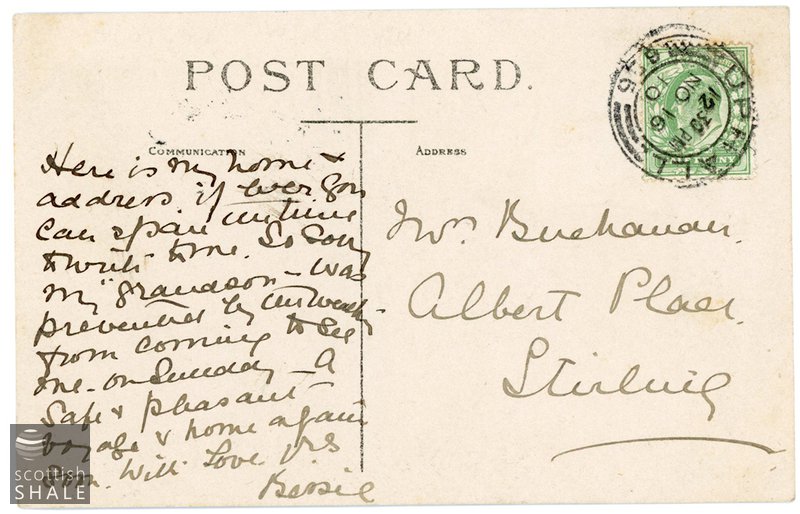 POST CARD.
COMMUNICATION
ADDRESS
UPHALL
12.30 PM
NO 16
10
946
PENNY
Here is my home &
address if ever you
can spair me time
to write to me. So Sorry
my "grandson – was
prevented by the weather
from coming to see
me – on Sunday – A
Safe & pleasant
voyage & home again
With Love yrs
Bessie
Mrs Buchanan.
Albert Place.
Stirling
Scottish
SHALE